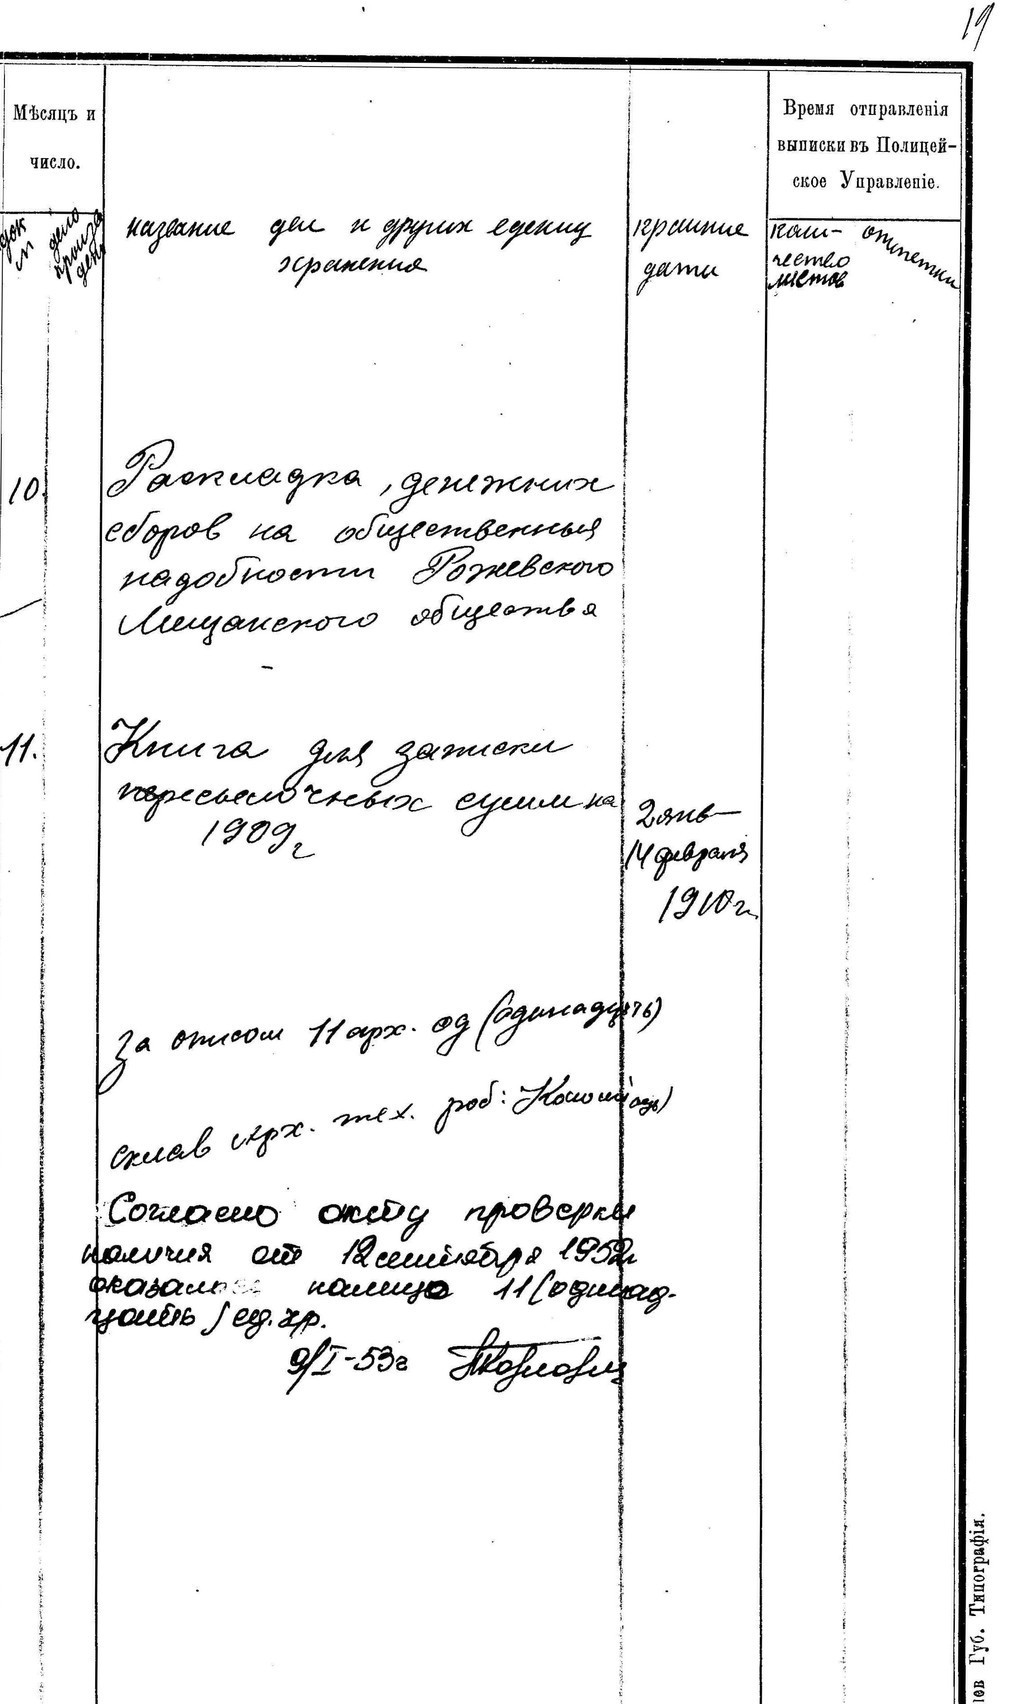 19
Мѣсяцъ и
число.
Время отправленія
выписки въ Полицей-
ское Управленіе.
дело
название дел и других едениц
хранения
крайние
даты
коли-
чество
листов
отметки
10.
Раскладка, денежних
сборов на общественныя
надобности Рожевского
Мещанского общества
11.
Книга для записки
пересылочных сумм на
1909г
2 янв-
14 февраля
1910г.
За описом 11 арх. од (одинадцять)
склав Арх. тех. роб:
Согласно акту проверки
наличия от 12 сентября 1952г
оказалось налицо 11 (одинад-
цать) ед. хр.
9/I-53г
Губ. Типографія.